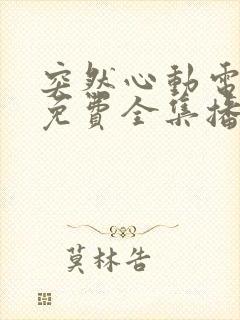 突然心動電
免費全集播
莫林告